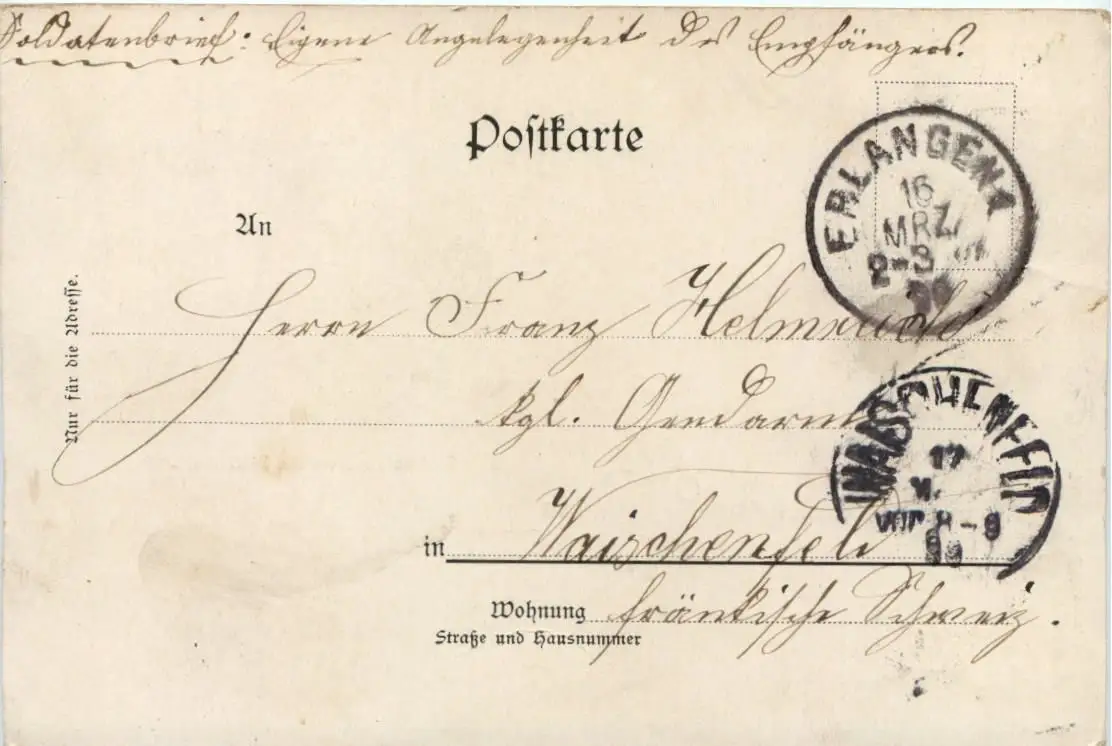 Soldatenbrief: Eigene Angelegenheit des Empfängers.
Postkarte
ERLANGEN 1
16
MRZ.
2-3
99
An
Nur für die Adresse.
Herrn Franz
kgl. Gendarm
WAISCHENFELD
17
M.
VOR 8-9
99
in Waischenfeld
Wohnung fränkische Schweiz.
Straße und Hausnummer